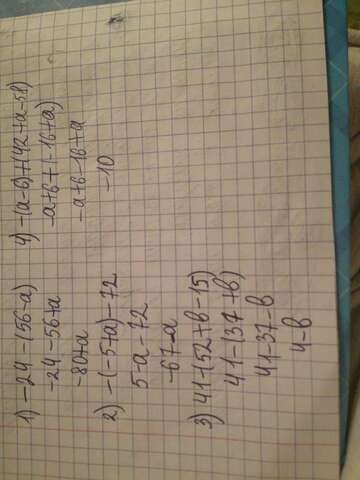 1) -24-(56-a)
-24-56+a
-80+a
2) -(-5+a)-72
5-a-72
-67-a
3) 41-(52+b-15)
41-(37+b)
41-37-b
4-b
4) -(a-6)+(42+a-58)
-a+6+(-16+a)
-a+6-16+a
-10